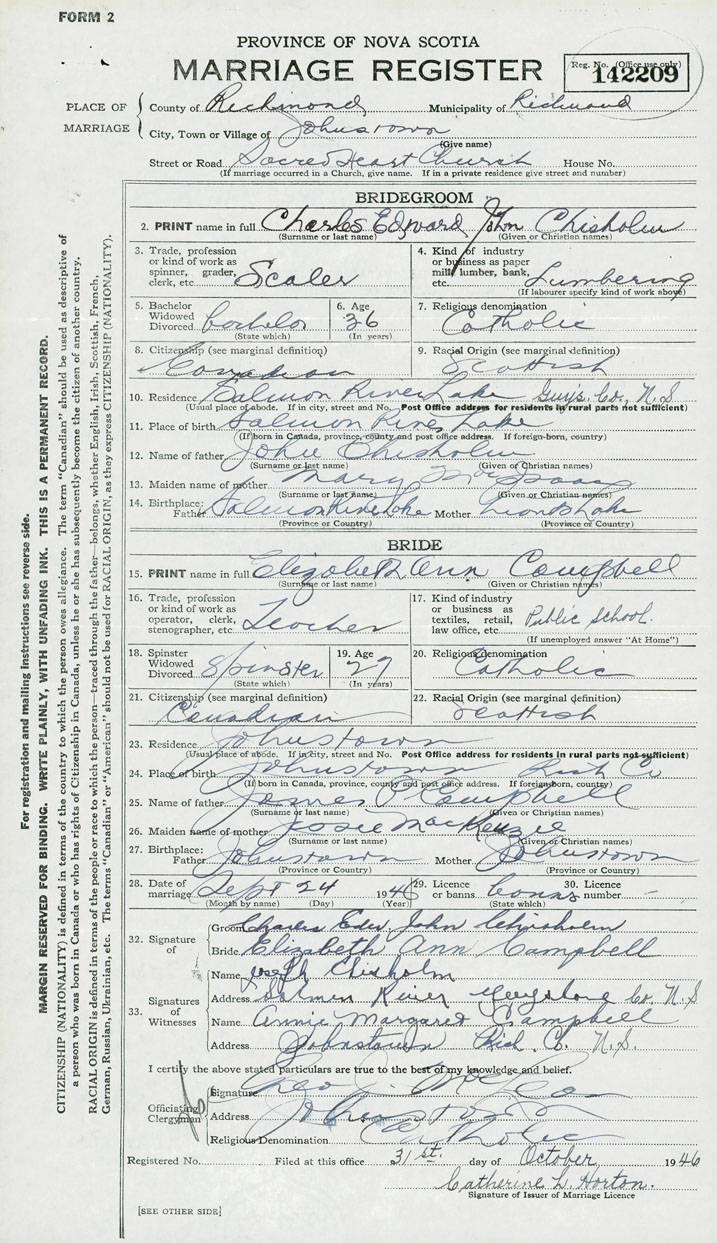 FORM 2
PROVINCE OF NOVA SCOTIA
MARRIAGE REGISTER
Reg. No. (Office use only)
142209
PLACE OF MARRIAGE
County of Richmond Municipality of Richmond
City, Town or Village of Johnstown
(Give name)
Street or Road Sacred Heart Church House No.
(If marriage occurred in a Church, give name. If in a private residence give street and number)
BRIDEGROOM
2. PRINT name in full Charles Edward John Chisholm
(Surname or last name) (Given or Christian names)
3. Trade, profession or kind of work as spinner, grader, clerk, etc. Scaler
4. Kind of industry or business as paper mill, lumber, bank, etc. Lumbering
(If labourer specify kind of work above)
5. Bachelor Widowed Divorced bachelor
(State which)
6. Age 36
(In years)
7. Religious denomination Catholic
8. Citizenship (see marginal definition) Canadian
9. Racial Origin (see marginal definition) Scottish
10. Residence Salmon River Lake Guys. Co., N.S
(Usual place of abode. If in city, street and No. Post Office address for residents in rural parts not sufficient)
11. Place of birth Salmon River Lake
(If born in Canada, province, county and post office address. If foreign-born, country)
12. Name of father John Chisholm
(Surname or last name) (Given or Christian names)
13. Maiden name of mother Mary McIsaac
(Surname or last name) (Given or Christian names)
14. Birthplace: Father Salmon River Lake Mother Lake
(Province or Country) (Province or Country)
BRIDE
15. PRINT name in full Elizabeth Ann Campbell
(Surname or last name) (Given or Christian names)
16. Trade, profession or kind of work as operator, clerk, stenographer, etc. Teacher
17. Kind of industry or business as textiles, retail, law office, etc. Public School.
(If unemployed answer "At Home")
18. Spinster Widowed Divorced Spinster
(State which)
19. Age 27
(In years)
20. Religious denomination Catholic
21. Citizenship (see marginal definition) Canadian
22. Racial Origin (see marginal definition) Scottish
23. Residence Johnstown
(Usual place of abode. If in city, street and No. Post Office address for residents in rural parts not sufficient)
24. Place of birth Johnstown Rich Co
(If born in Canada, province, county and post office address. If foreign-born, country)
25. Name of father James P Campbell
(Surname or last name) (Given or Christian names)
26. Maiden name of mother Josie MacKenzie
(Surname or last name) (Given or Christian names)
27. Birthplace: Father Johnstown Mother Johnstown
(Province or Country) (Province or Country)
28. Date of marriage Sept 24 1946
(Month by name) (Day) (Year)
29. Licence or banns banns
(State which)
30. Licence number -
32. Signature of
Groom Charles Edw. John Chisholm
Bride Elizabeth Ann Campbell
33. Signatures of Witnesses
Name Joseph Chisholm
Address Salmon River Co. N.S
Name Annie Margaret Campbell
Address Johnstown Rich. Co. N.S.
I certify the above stated particulars are true to the best of my knowledge and belief.
Officiating Clergyman
Signature
Address Johnstown
Religious Denomination Catholic
Registered No. Filed at this office 31st. day of October 1946
Catherine L. Horton.
Signature of Issuer of Marriage Licence
[SEE OTHER SIDE]
For registration and mailing instructions see reverse side.
MARGIN RESERVED FOR BINDING. WRITE PLAINLY, WITH UNFADING INK. THIS IS A PERMANENT RECORD.
CITIZENSHIP (NATIONALITY) is defined in terms of the country to which the person owes allegiance. The term "Canadian" should be used as descriptive of
a person who was born in Canada or who has rights of Citizenship in Canada, unless he or she has subsequently become the citizen of another country.
RACIAL ORIGIN is defined in terms of the people or race to which the person—traced through the father—belongs, whether English, Irish, Scottish, French,
German, Russian, Ukrainian, etc. The terms "Canadian" or "American" should not be used for RACIAL ORIGIN, as they express CITIZENSHIP (NATIONALITY).